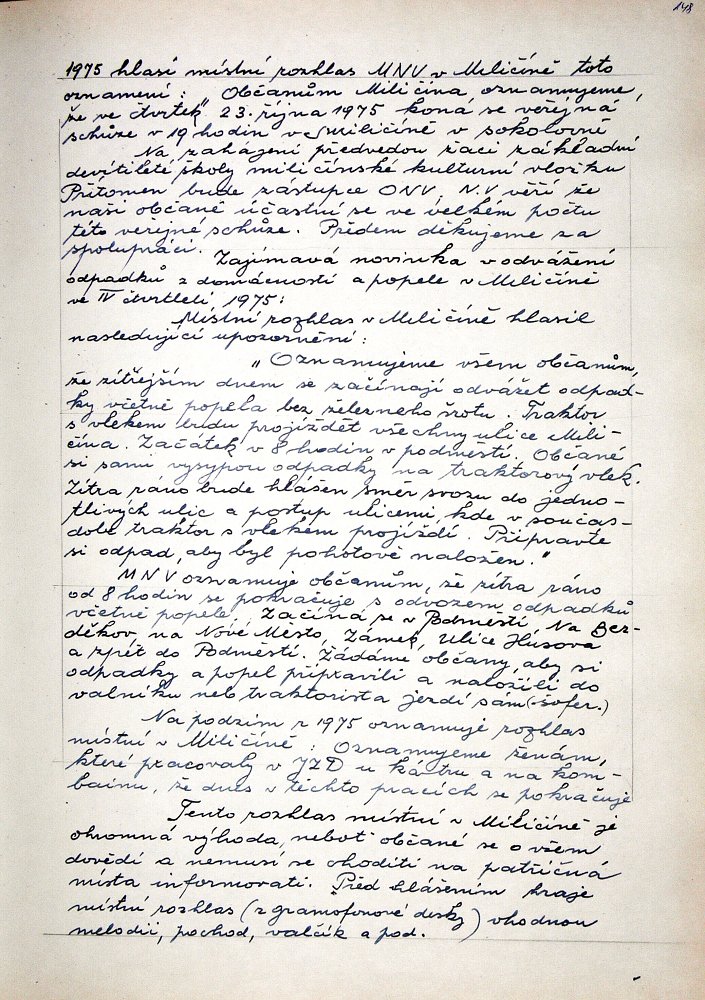 148
1975 hlasí místní rozhlas MNV v Miličíně toto
oznamení: Občanům Miličína oznamujeme,
že ve čtvrtek" 23. října 1975 koná se veřejná
schůze v 19 hodin v Miličíně v sokolovně
Na zahájení předvedou žáci základní
devítileté školy miličínské kulturní vložku
Přítomen bude zástupce ONV. N.V věří že
naši občané účastní se ve velkém počtu
této veřejné schůze. Předem děkujeme za
spolupráci. Zajímavá novinka v odvážení
odpadků z domácností a popele v Miličíně
ve IV čtvrtletí 1975:
Místní rozhlas v Miličíně hlasil
nasledující upozornění:
„Oznamujeme všem občanům,
že zítřejším dnem se začínají odvážet odpad-
ky včetně popela bez železneho šrotu. Traktor
s vlekem budu projíždět všechny ulice Mili-
čína. Začátek v 8 hodin v podměstí. Občané
si sami vysypou odpadky na traktorový vlek.
Zítra ráno bude hlášen směr svozu do jedno-
tlivých ulic a postup ulicemi, kde v součas-
době traktor s vlekem projíždí. Připravte
si odpad, aby byl pohotově naložen."
MNV oznamuje občanům, že zítra ráno
od 8 hodin se pokračuje s odvozem odpadků
včetně popele. Začíná se v Podměstí, Na Ber-
děkov, na Nové Město, Zámek, Ulice Husova
a zpět do Podměstí. Žádáme občany, aby si
odpadky a popel připravili a naložili do
valníku neb traktorista jezdí sám (šofer.)
Na podzim r 1975 oznamuje rozhlas
místní v Miličíně: Oznamujeme ženám,
které pracovaly v JZD u kástru a na kom-
bainu, že dnes v těchto pracích se pokračuje
Tento rozhlas místní v Miličíně je
ohromná výhoda, neboť občané se o všem
dovědí a nemusí se choditi na patřičná
místa informovati. Před hlášením hraje
místní rozhlas (z gramofonové desky) vhodnou
melodii, pochod, valčík a pod.